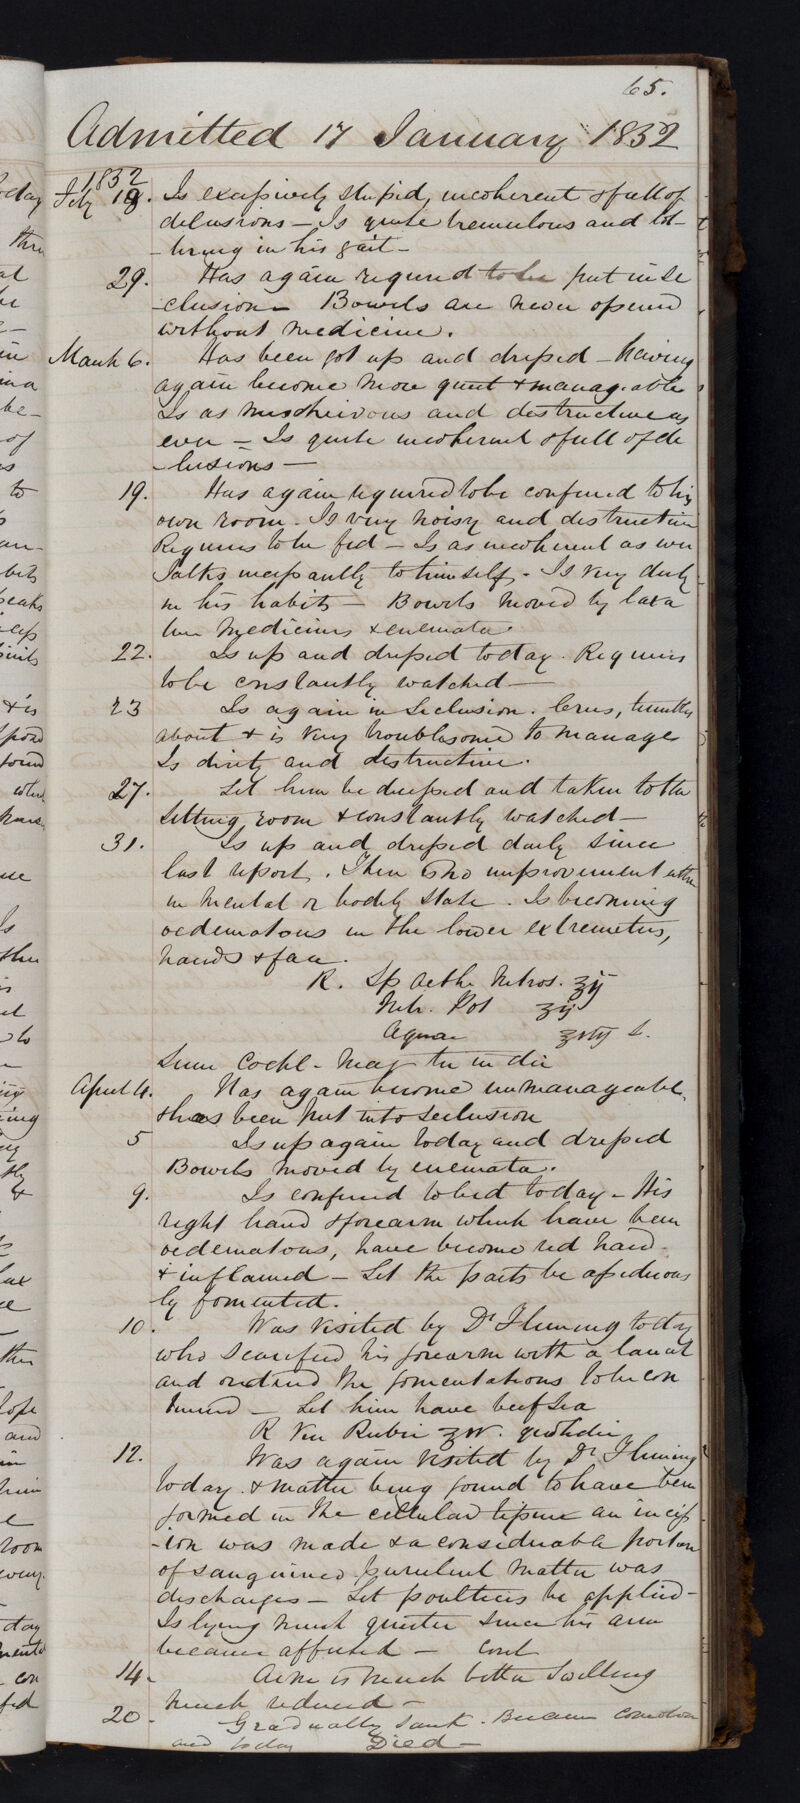 65.
Admitted 17 January 1832
1832
Feby 18. Is excessively stupid, incoherent & full of
delusions — Is quite tremulous and tot-
-tering in his gait —
29. Has again required to be put in se
-clusion — Bowels are never opened
without medicine.
March 6. Has been got up and dressed — having
again become more quiet & manageable
Is as mischeivous and destructive as
ever — Is quite incoherent & full of de
-lusions —
19. Has again required to be confined to his
own room. Is very noisy and destructive
Requires to be fed — Is as incoherent as ever
Talks incessantly to himself. Is very dirty
in his habits — Bowels moved by laxa
tive medicines & enemata.
22. Is up and dressed today. Requires
to be constantly watched —
23 Is again in Seclusion. Cries, tumbles
about & is very troublesome to manage
Is dirty and destructive.
27. Let him be dressed and taken to the
sitting room & constantly watched —
31. Is up and dressed daily since
last report. There is no improvement either
in mental or bodily state. Is becoming
oedematous in the lower extremeties,
hands & face.
R. Sp Aeth Nitros. ʒij
Nitr. Pot ʒij
Aquae
Sum Cochl. mag ter in die
April 4. Has again become unmanageable
& has been put into seclusion
5 Is up again today and dressed
Bowels moved by enemata.
9. Is confined to bed today — His
right hand & forearm which have been
oedematous, have become red hard
& inflamed — Let the parts be assiduous
ly fomented.
10. Was visited by Dr Fleming today
who scarified his forearm with a lancet
and ordered the fomentations to be con
tinued — Let him have beef tea
R Vin Rubri quotidie
12. Was again visited by Dr Fleming
today & matter being found to have been
formed in the cellular tissue an incis
-ion was made & a considerable portion
of sanguineo purulent matter was
discharges — Let poultices be applied —
Is lying much quieter since his arm
became affected — cont
14. Arm is much better Swelling
much reduced —
20. Gradually sank. Became comatose
and today Died —